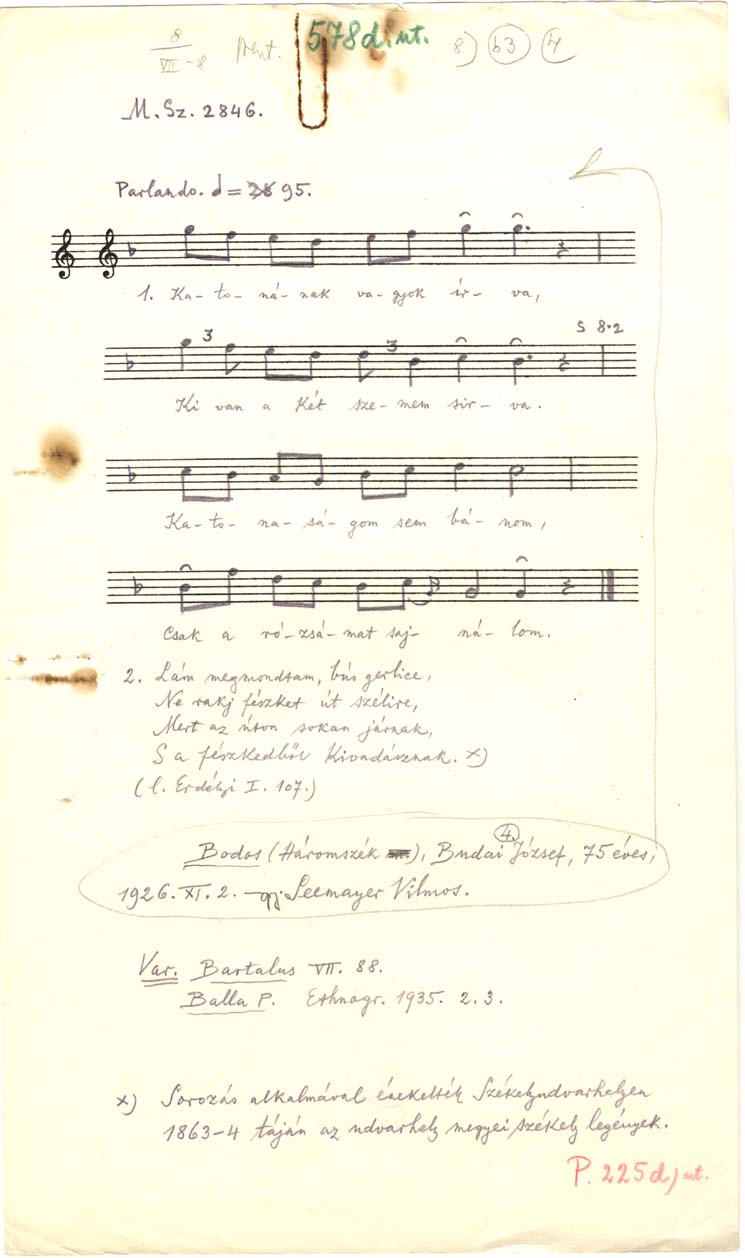 8
VII - 8 pent. 578d. ut. 8) b3 4
M. Sz. 2846.
Parlando. = 28 95.
1. Ka- to- ná- nak va- gyok ír- va,
3 3 S 8·2
Ki van a két sze- mem sir- va.
Ka- to- na- sá- gom sem bá- nom,
Csak a ró- zsá- mat saj- ná- lom.
2. Lám megmondtam, bús gerlice,
Ne rakj fészket út szélire,
Mert az úton sokan járnak,
S a fészkedből kivadásznak. x)
(l. Erdélyi I. 107.)
4.
Bodos (Háromszék), Budai József, 75 éves,
1926. XI. 2. gj Seemayer Vilmos.
Var. Bartalus VII. 88.
Balla P. Ethnogr. 1935. 2. 3.
x) Sorozás alkalmával énekelték Székelyudvarhelyen
1863-4 táján az udvarhely megyei székely legények.
P. 225d) ut.